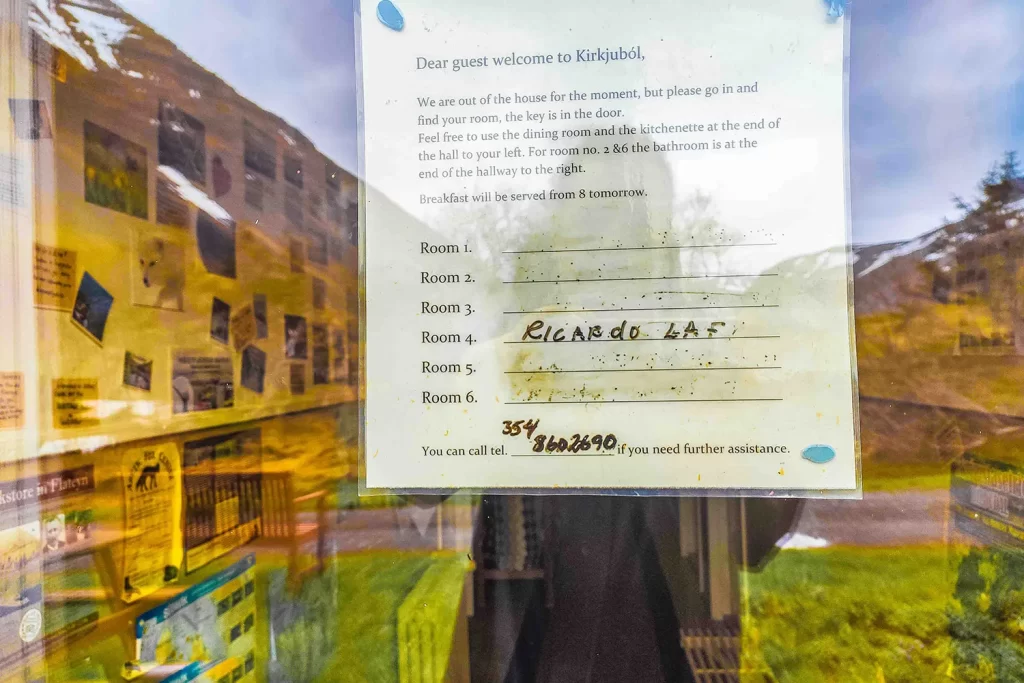 Dear guest welcome to Kirkjuból,
We are out of the house for the moment, but please go in and
find your room, the key is in the door.
Feel free to use the dining room and the kitchenette at the end of
the hall to your left. For room no. 2 &6 the bathroom is at the
end of the hallway to the right.
Breakfast will be served from 8 tomorrow.
Room 1.
Room 2.
Room 3.
Room 4. RICARDO LAF
Room 5.
Room 6.
354
You can call tel. 8602690 if you need further assistance.
kstore in Flateyri